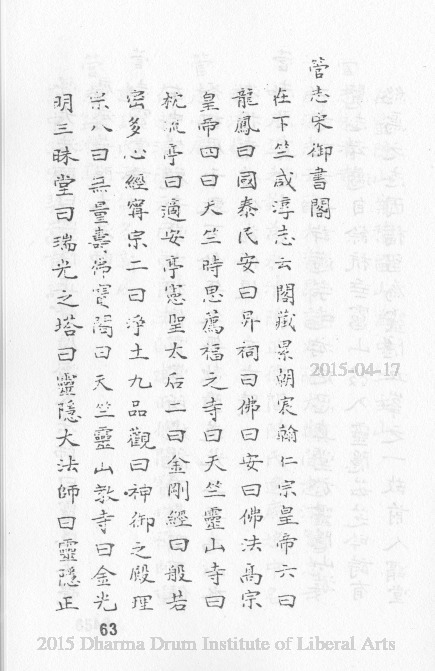 管志宋御書閣
在下竺咸淳志云閣藏累朝宸翰仁宗皇帝六曰
龍鳳曰國泰民安曰昇祠曰佛曰安曰佛法高宗
皇帝四曰天竺時思薦福之寺曰天竺靈山寺曰
枕流亭曰適安亭憲聖太后二曰金剛經曰般若
密多心經寗宗二曰淨土九品觀曰神御之殿理
宗八曰無量壽佛寶閣曰天竺靈山教寺曰金光
明三昧堂曰瑞光之塔曰靈隱大法師曰靈隱正
63
2015-04-17
2015 Dharma Drum Institute of Liberal Arts